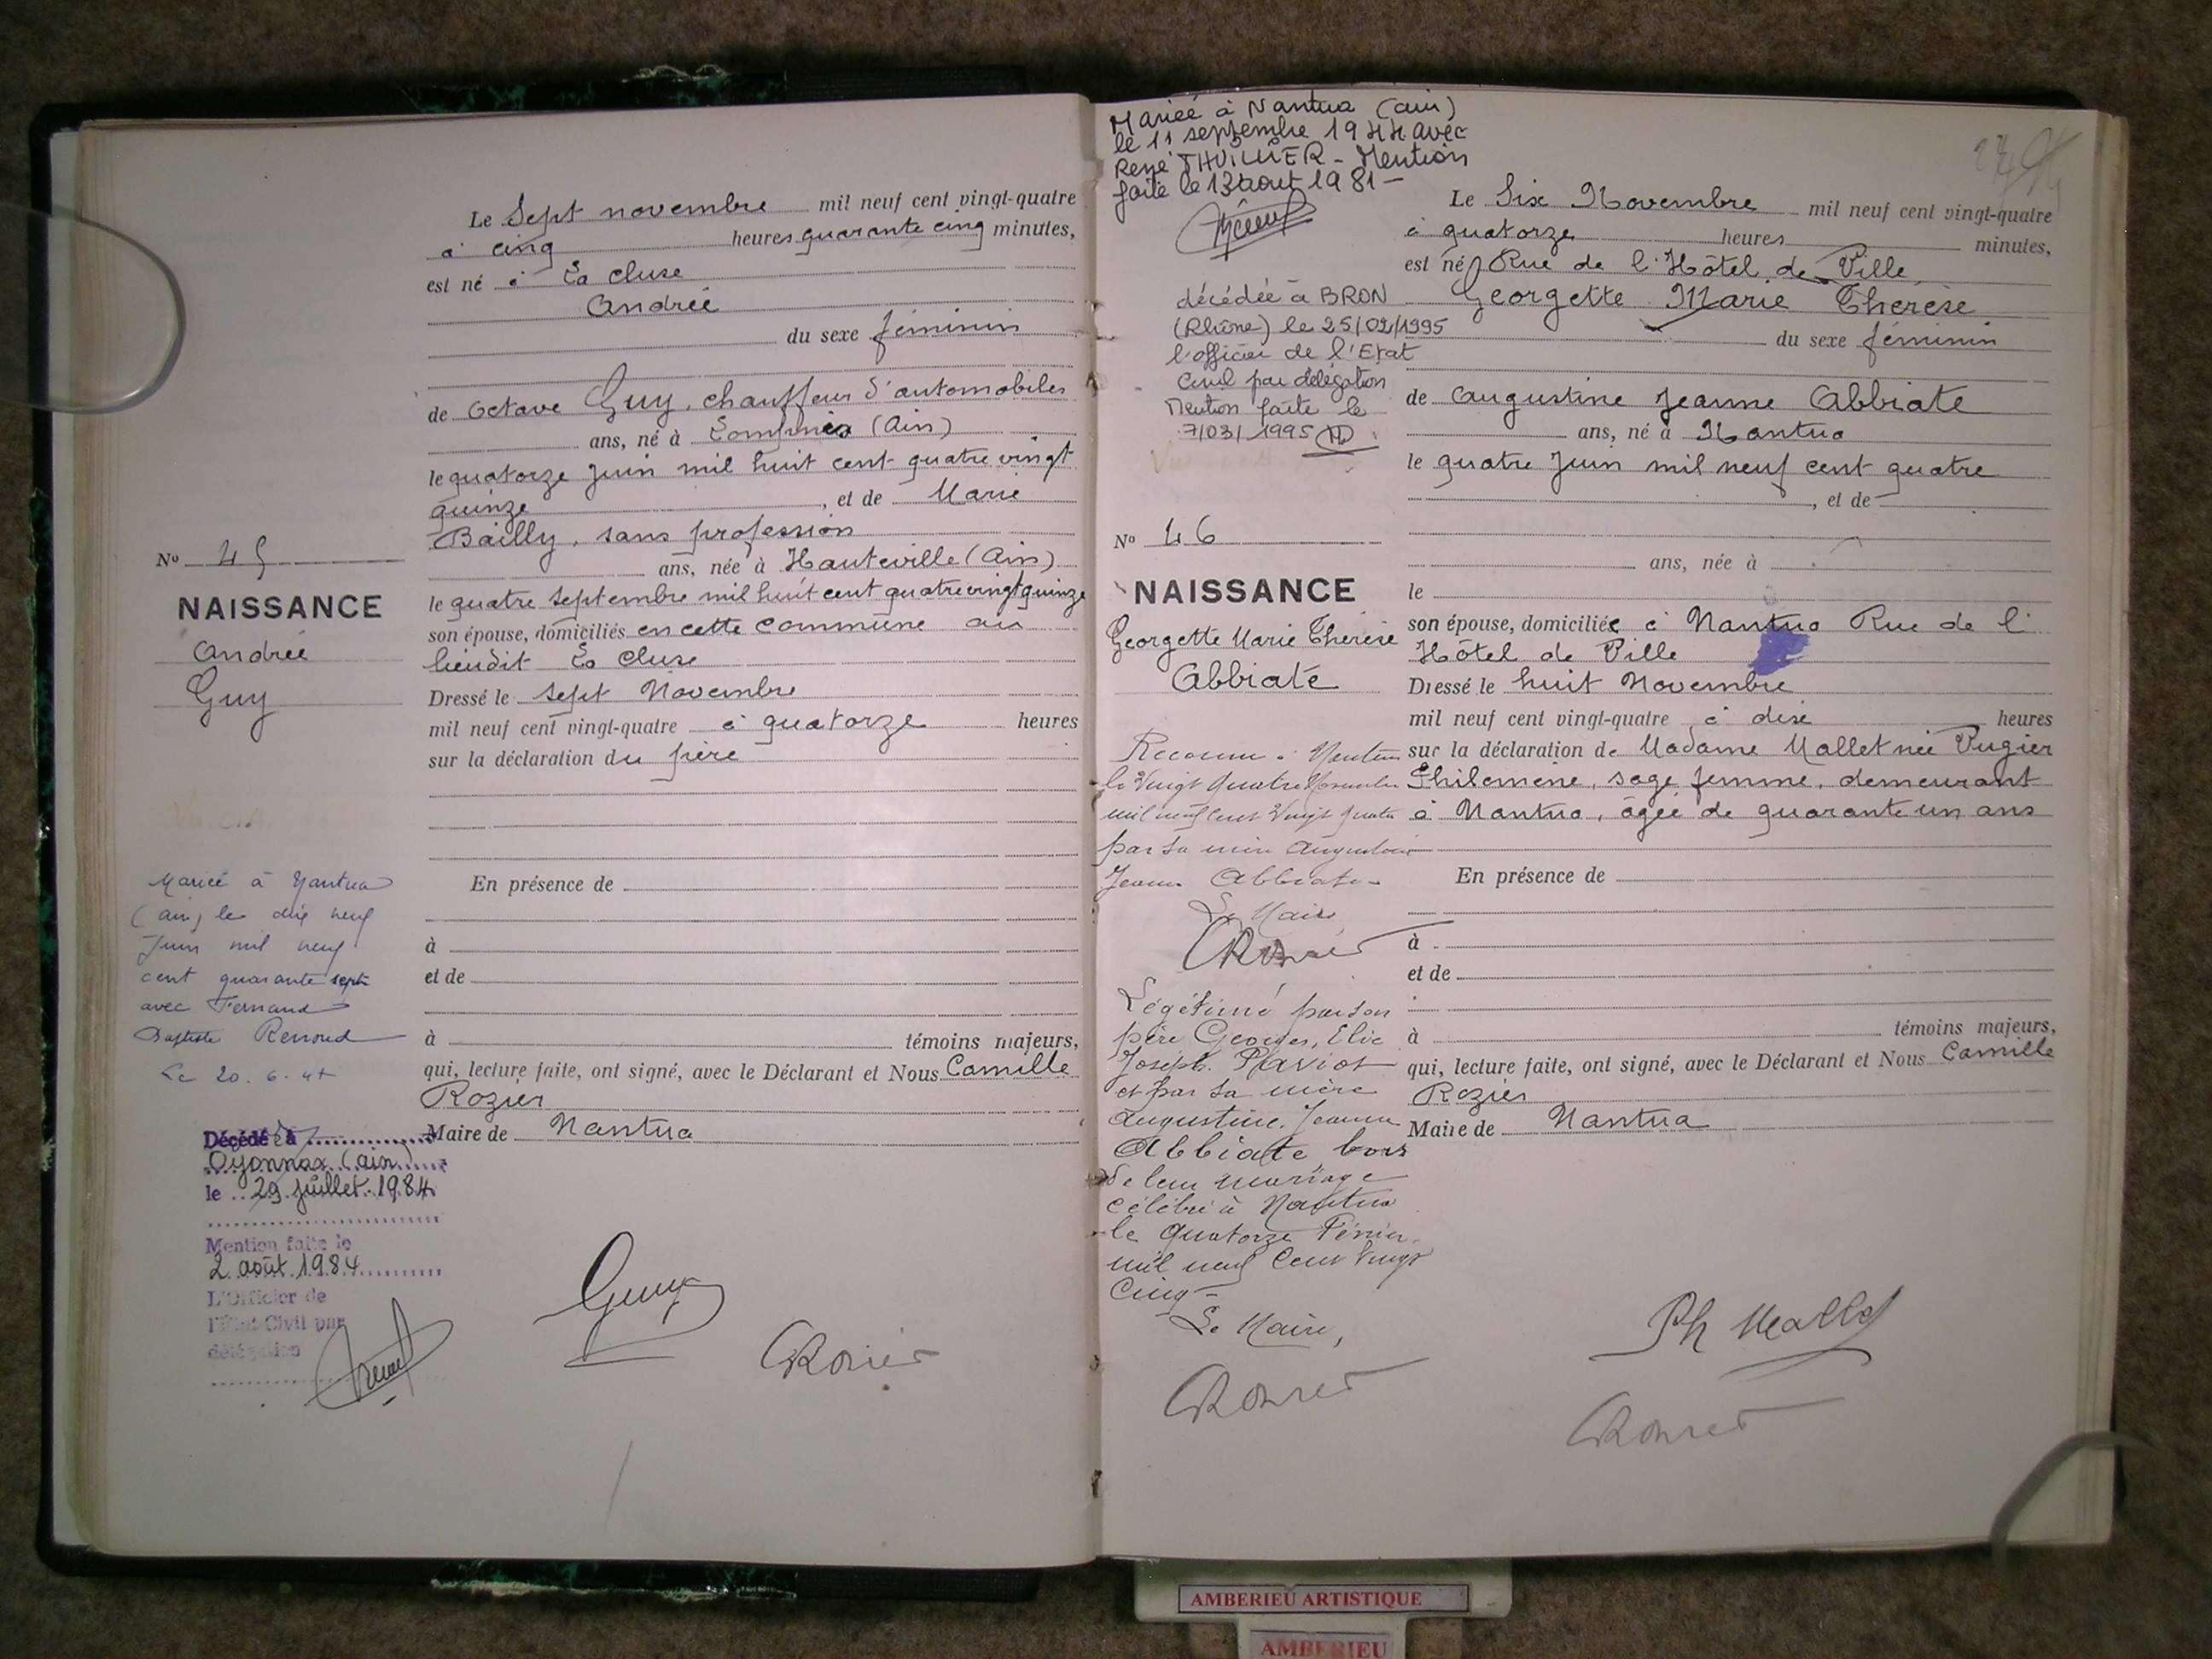 Le Sept novembre mil neuf cent vingt-quatre
à cinq heures quarante cinq minutes,
est né à La Cluse
Andrée
du sexe féminin
de Octave Guy, chauffeur d'automobiles
ans, né à (Ain)
le quatorze Juin mil huit cent quatre vingt
quinze, et de Marie
Bailly, sans profession
ans, née à Hauteville (Ain)
le quatre Septembre mil huit cent quatre vingt quinze
son épouse, domiciliés en cette commune au
lieudit La Cluse
Dressé le sept Novembre
mil neuf cent vingt-quatre à quatorze heures
sur la déclaration du père
En présence de
à
et de
à témoins majeurs,
qui, lecture faite, ont signé, avec le Déclarant et Nous Camille
Rozier
Maire de Nantua
Nº 45
NAISSANCE
Andrée
Guy
Mariée à Nantua
(Ain) le dix neuf
Juin mil neuf
cent quarante sept
avec Fernand
Baptiste Renoud
Le 20.6.47
Décédée à
Oyonnax (ain)
le 29 juillet 1984
Mention faite le
2 août 1984
L'Officier de
l'État-Civil par
délégation
Guy
CRozier
Mariée à Nantua (ain)
le 11 septembre 1944 avec
René THUILLIER - Mention
faite le 13 août 1981 -
décédée à BRON
(Rhône) le 25/02/1995
l'officier de l'Etat
Civil par délégation
Mention faite le
7/03/1995
Nº 46
NAISSANCE
Georgette Marie Thérèse
Abbiate
Reconnue à Nantua
le Vingt Quatre Novembre
mil neuf cent Vingt quatre
par sa mère Augustine
Jeanne Abbiate -
Le Maire
CRozier
Légitimé par son
père Georges, Elie
Joseph
et par sa mère
Augustine, Jeanne
Abbiate lors
de leur mariage
célébré à Nantua
le quatorze Février
mil neuf Cent Vingt
Cinq -
Le Maire,
CRozier
Le Six Novembre mil neuf cent vingt-quatre
à quatorze heures minutes,
est né Rue de l'Hôtel de Ville
Georgette Marie Thérèse
du sexe féminin
de Augustine Jeanne Abbiate
ans, né à Nantua
le quatre Juin mil neuf cent quatre
, et de
ans, née à
le
son épouse, domiciliée à Nantua Rue de l'
Hôtel de Ville
Dressé le huit Novembre
mil neuf cent vingt-quatre à dix heures
sur la déclaration de Madame Mallet née Vugier
Philomène, sage femme, demeurant
à Nantua, âgée de quarante un ans
En présence de
à
et de
à témoins majeurs,
qui, lecture faite, ont signé, avec le Déclarant et Nous Camille
Rozier
Maire de Nantua
Ph Mallet
CRozier
AMBERIEU ARTISTIQUE
AMBERIEU